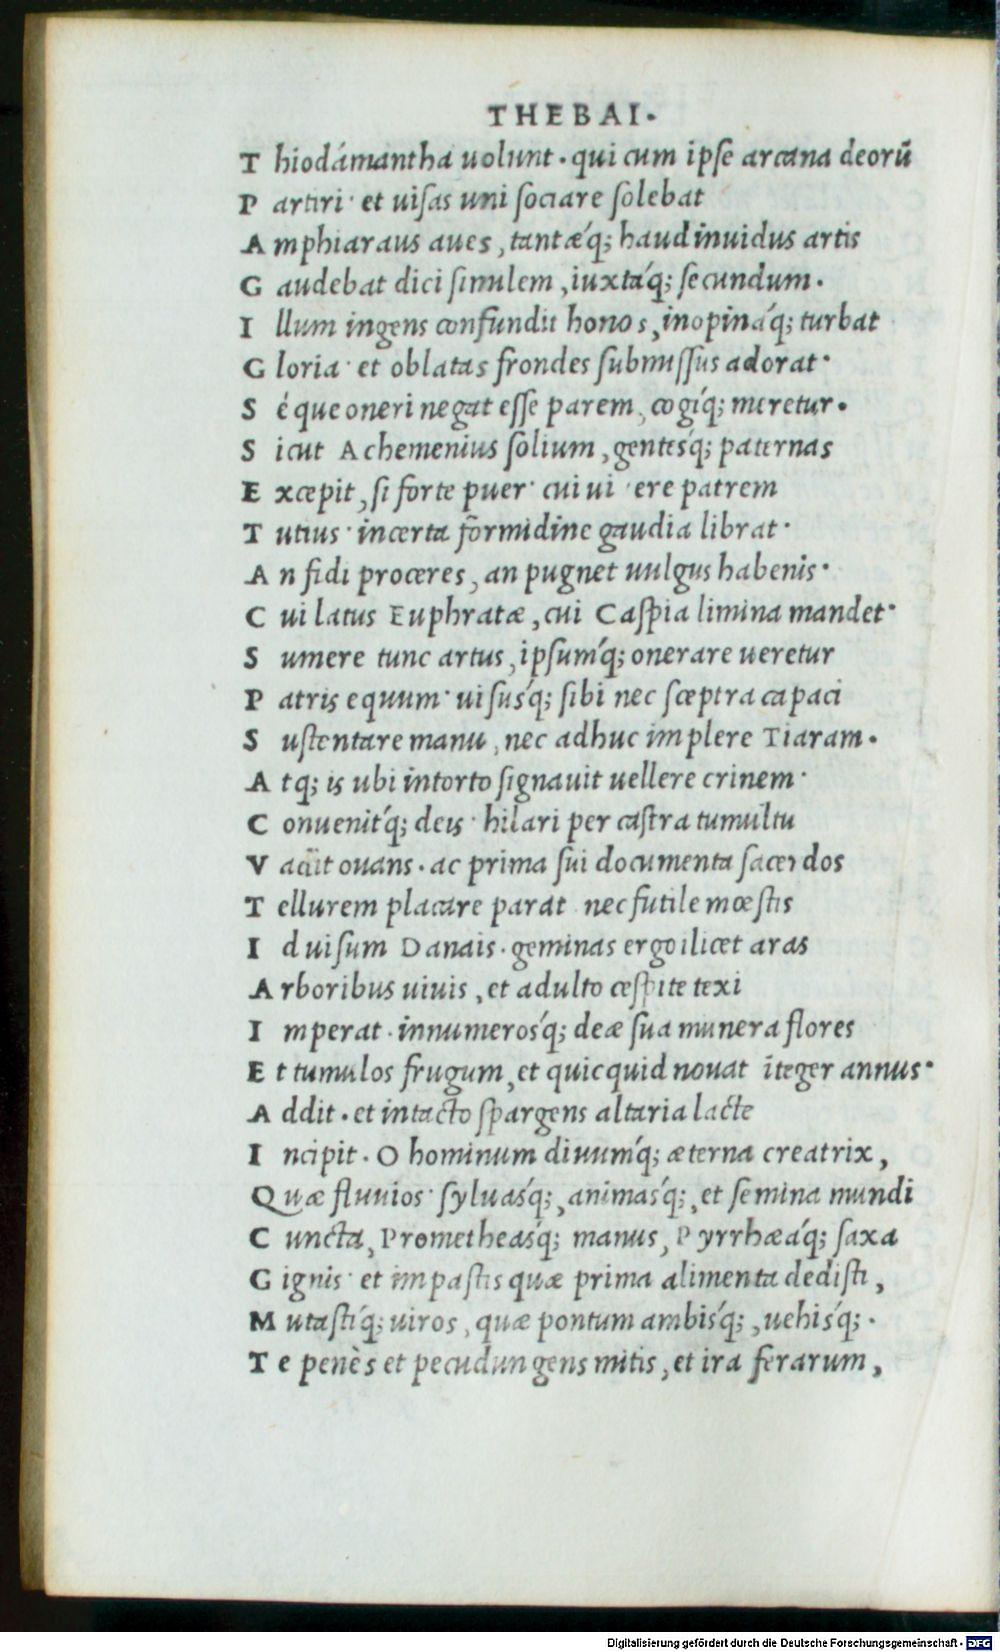 THEBAI.
Thiodámantha uolunt. qui cum ipse arcana deorū
Partiri· et uisas uni sociare solebat
Amphiaraus aues, tantæq́; haud inuidus artis
Gaudebat dici similem, iuxtáq́; secundum.
Illum ingens confundit honos, inopináq́; turbat
Gloria· et oblatas frondes submissus adorat·
Séque oneri negat esse parem, cogíq́; meretur.
Sicut Achemenius solium, gentesq́; paternas
Excepit, si forte puer· cui ui ere patrem
Tutius· incerta formidine gaudia librat·
An fidi proceres, an pugnet uulgus habenis·
Cui latus Euphratæ, cui Caspia limina mandet·
Sumere tunc artus, ipsumq́; onerare ueretur
Patris equum· uisusq́; sibi nec sceptra capaci
Sustentare manu, nec adhuc implere Tiaram.
Atq; is ubi intorto signauit uellere crinem·
Conuenitq́; deis· hilari per castra tumultu
Vadit ouans. ac prima sui documenta sacerdos
Tellurem placare parat nec futile mœstis
Id uisum Danais. geminas ergo ilicet aras
Arboribus uiuis, et adulto cespite texi
Imperat. innumerosq́; deæ sua munera flores
Et tumulos frugum, et quicquid nouat īteger annus·
Addit. et intacto spargens altaria lacte
Incipit. O hominum diuumq́; æterna creatrix,
Quæ fluuios· syluasq́;, animasq́;, et semina mundi
Cuncta, Prometheasq́; manus, Pyrrhæáq́; saxa
Gignis· et impastis quæ prima alimenta dedisti,
Mutastíq́; uiros, quæ pontum ambisq́;, uehisq́;.
Te penès et pecudun gens mitis, et ira ferarum,
Digitalisierung gefördert durch die Deutsche Forschungsgemeinschaft - DFG